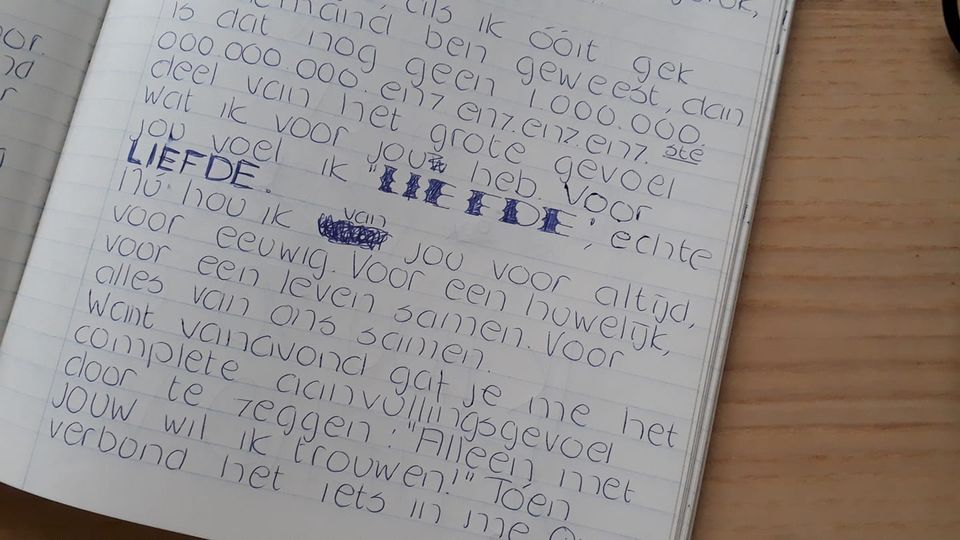 als ik óóit gek
emand ben geweest, dan
is dat nog geen 1.000.000.
000.000.000.enz.enz.enz.enz. ste
deel van het grote gevoel
wat ik voor jou heb. Voor
jou voel ik "LIEFDE", echte
LIEFDE.
Nú hou ik van jou voor altijd,
voor eeuwig. Voor een huwelijk,
voor een leven samen. Voor
alles van ons samen.
Want vanavond gaf je me het
complete aanvullingsgevoel
door te zeggen: "Alleen met
jouw wil ik trouwen!" Tóen
verbond het iets in me